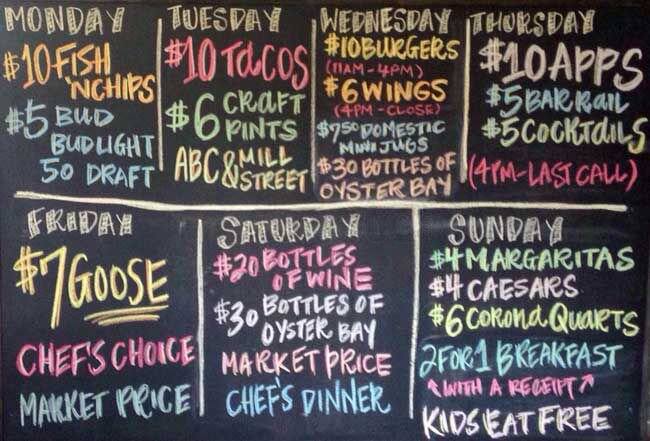 MONDAY
$10 FISH
'N CHIPS
$5 BUD
BUD LIGHT
50 DRAFT
TUESDAY
$10 TACOS
$6 CRAFT
PINTS
ABC & MILL
STREET
WEDNESDAY
$10 BURGERS
(11AM-4PM)
$6 WINGS
(4PM-CLOSE)
$7.50 DOMESTIC
MINI JUGS
$30 BOTTLES OF
OYSTER BAY
THURSDAY
$10 APPS
$5 BAR RAIL
$5 COCKTAILS
(4PM-LAST CALL)
FRIDAY
$7 GOOSE
CHEF'S CHOICE
MARKET PRICE
SATURDAY
$20 BOTTLES
OF WINE
$30 BOTTLES OF
OYSTER BAY
MARKET PRICE
CHEF'S DINNER
SUNDAY
$4 MARGARITAS
$4 CAESARS
$6 CORONA QUARTS
2 FOR 1 BREAKFAST
↑ WITH A RECEIPT ↗
KIDS EAT FREE